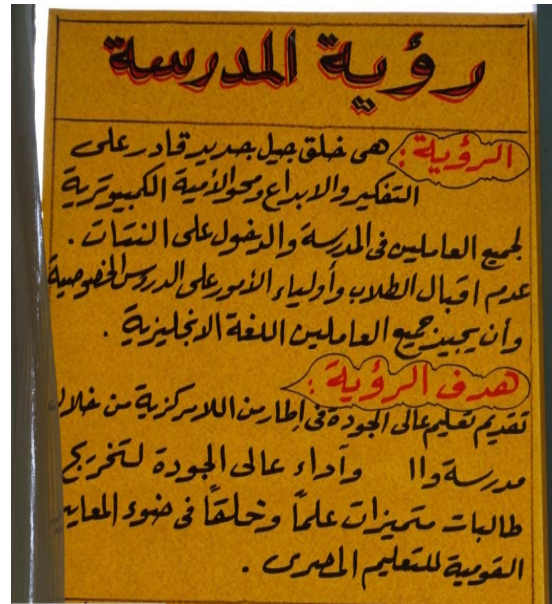 رؤية المدرسة
الرؤية : هى خلق جيل جديد قادر على
التفكير والابداع ومحو الأمية الكمبيوترية
لجميع العاملين فى المدرسة والدخول على النتات .
عدم اقبال الطلاب وأولياء الأمور على الدروس الخصوصية
وأن يجيد جميع العاملين اللغة الانجليزية .
هدف الرؤية :
تقديم تعليم عالى الجودة فى إطار من اللامركزية من خلال
مدرسة واا وآداء عالى الجودة لتخريج
طالبات متميزات علماً وخلقاً فى ضوء المعايير
القومية للتعليم المصرى .